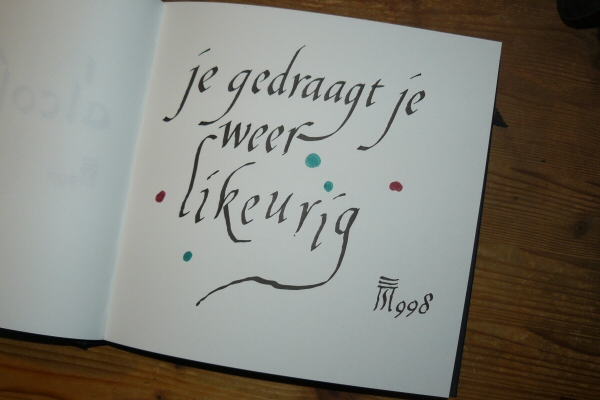 je gedraagt je
weer
likeurig
1998